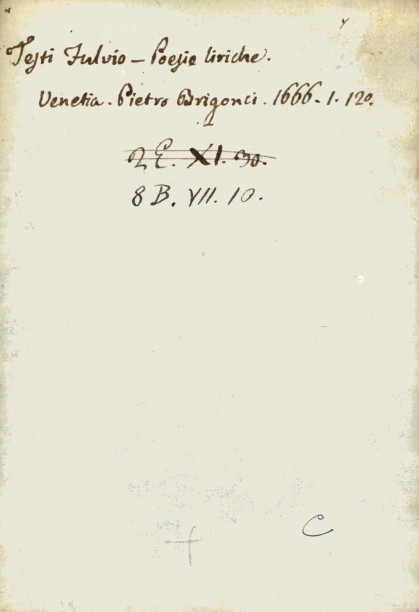 Testi Fulvio – Poesie liriche.
Venetia. Pietro Brigonci. 1666. 1. 12º.
2 E. XI. 30.
8 B. VII. 10.
C